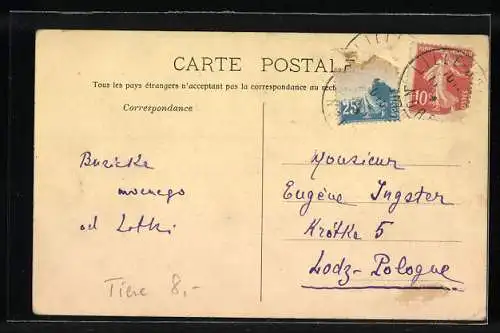 CARTE POSTALE
Tous les pays étrangers n'acceptant pas la correspondance au
Correspondance
25
10
Buziaka
mocnego
od Lotki
Monsieur
Eugène Ingster
Krótka 5
Lodz-Pologne
Tiere 8,-